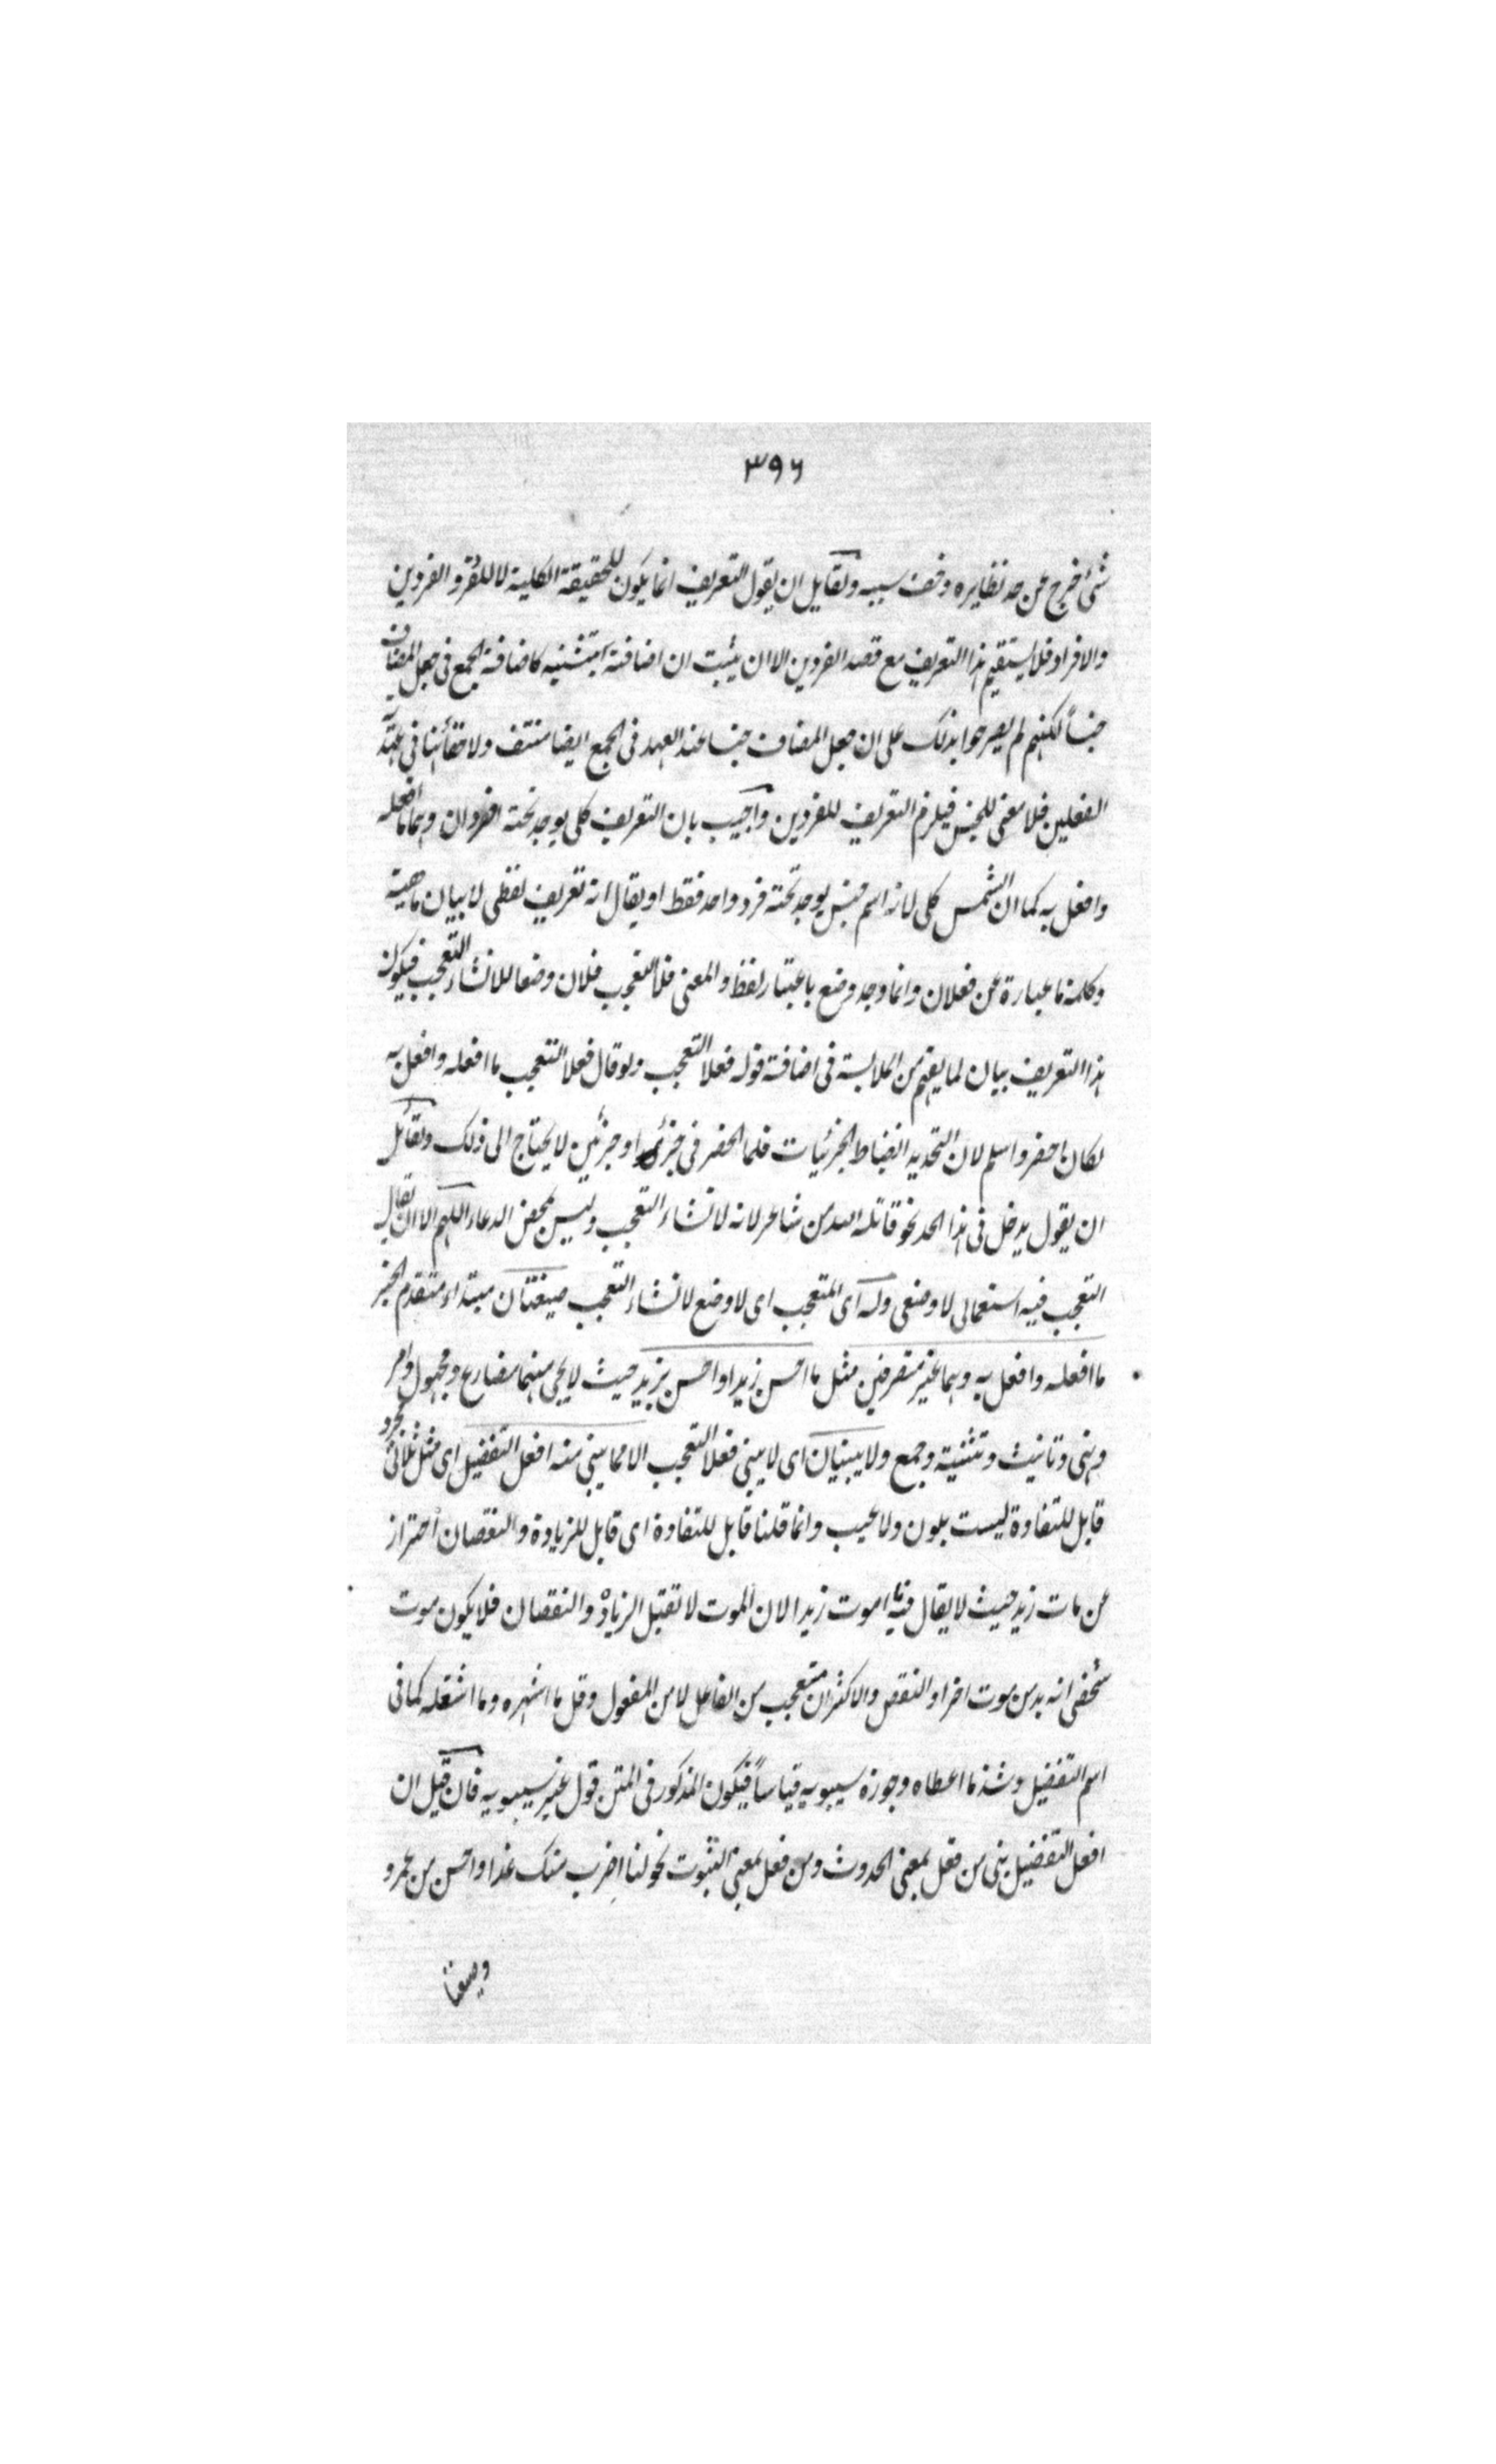 ٣٩٦
شئ خرج عن حد نظايره وخف سببه ولقايل ان يقول التعريف انما يكون للحقيقة الكلية لا للفرد والفردين
والافراد فلا يستقيم هذا التعريف مع قصد الفردين الا ان يثبت ان اضافة التثنيه كاضافة الجمع فى جعل المضاف
جنساً لكنهم لم يصرحوا بذلك على ان جعل المضاف جنسا عند العهد فى الجمع ايضا منتف ولا خفاء هنا فى عهدية
الفعلين فلا معنى للجنس فيلزم التعريف للفردين واجيب بان التعريف كلى يوجد تحته افردان وهما ما افعله
وافعل به كما ان الشمس كلى لانه اسم جنس يوجد تحته فرد واحد فقط او يقال انه تعريف لفظى لا بيان ماهية
وكلمة ما عبارة عن فعلان وانما وجد وضع باعتبار لفظ والمعنى فلا التعجب فلان وضعا للانشاء التعجب فيكون
هذا التعريف بيان لما يفهم من الملابسة فى اضافة قوله فعلا التعجب ولو قال فعلا التعجب ما افعله وافعل به
لكان اخصر واسلم لان التحديد انضباط الجزئيات فلما انحصر فى جزئى او جزئين لا يحتاج الى ذلك ولقائل
ان يقول يدخل فى هذا الحد نحو قاتله الله من شاعر لانه لانشاء التعجب وليس محض الدعاء اللهم الا ان يقال
التعجب فيه استعمالى لا وضعى وله اى المتعجب اى لا وضع لانشاء التعجب صيغتان مبتداء متقدم الخبر
ما افعله وافعل به وهما غير متصرفين مثل ما احسن زيدا واحسن بزيد حيث لا يجى منهما مضارع ومجهول وامر
ونهى وتانيث وتثنية وجمع ولا يبنيان اى لا يبنى فعلا التعجب الا مما يبنى منه افعل التفضيل اى مثل ثلاثى مجرد
قابل للتفاوة ليست بلون ولا عيب وانما قلنا قابل للتفاوة اى قابل للزيادة والنقصان احتراز
عن مات زيد حيث لا يقال فيه ما اموت زيدا لان الموت لا تقبل الزيادة والنقصان فلا يكون موت
شخص انه بد من موت اخر او النقص والاكثر ان متعجب من الفاعل لا من المفعول وقل ما اشهره وما اشغله كما فى
اسم التفضيل وشذ ما اعطاه وجوزه سيبويه قياساً فيكون المذكور فى المتن قول غير سيبويه فان قيل ان
افعل التفضيل بنى من فعل بمعنى الحدوث ومن فعل بمعنى الثبوت نحو لنا اضرب منك غدا واحسن من عمرو